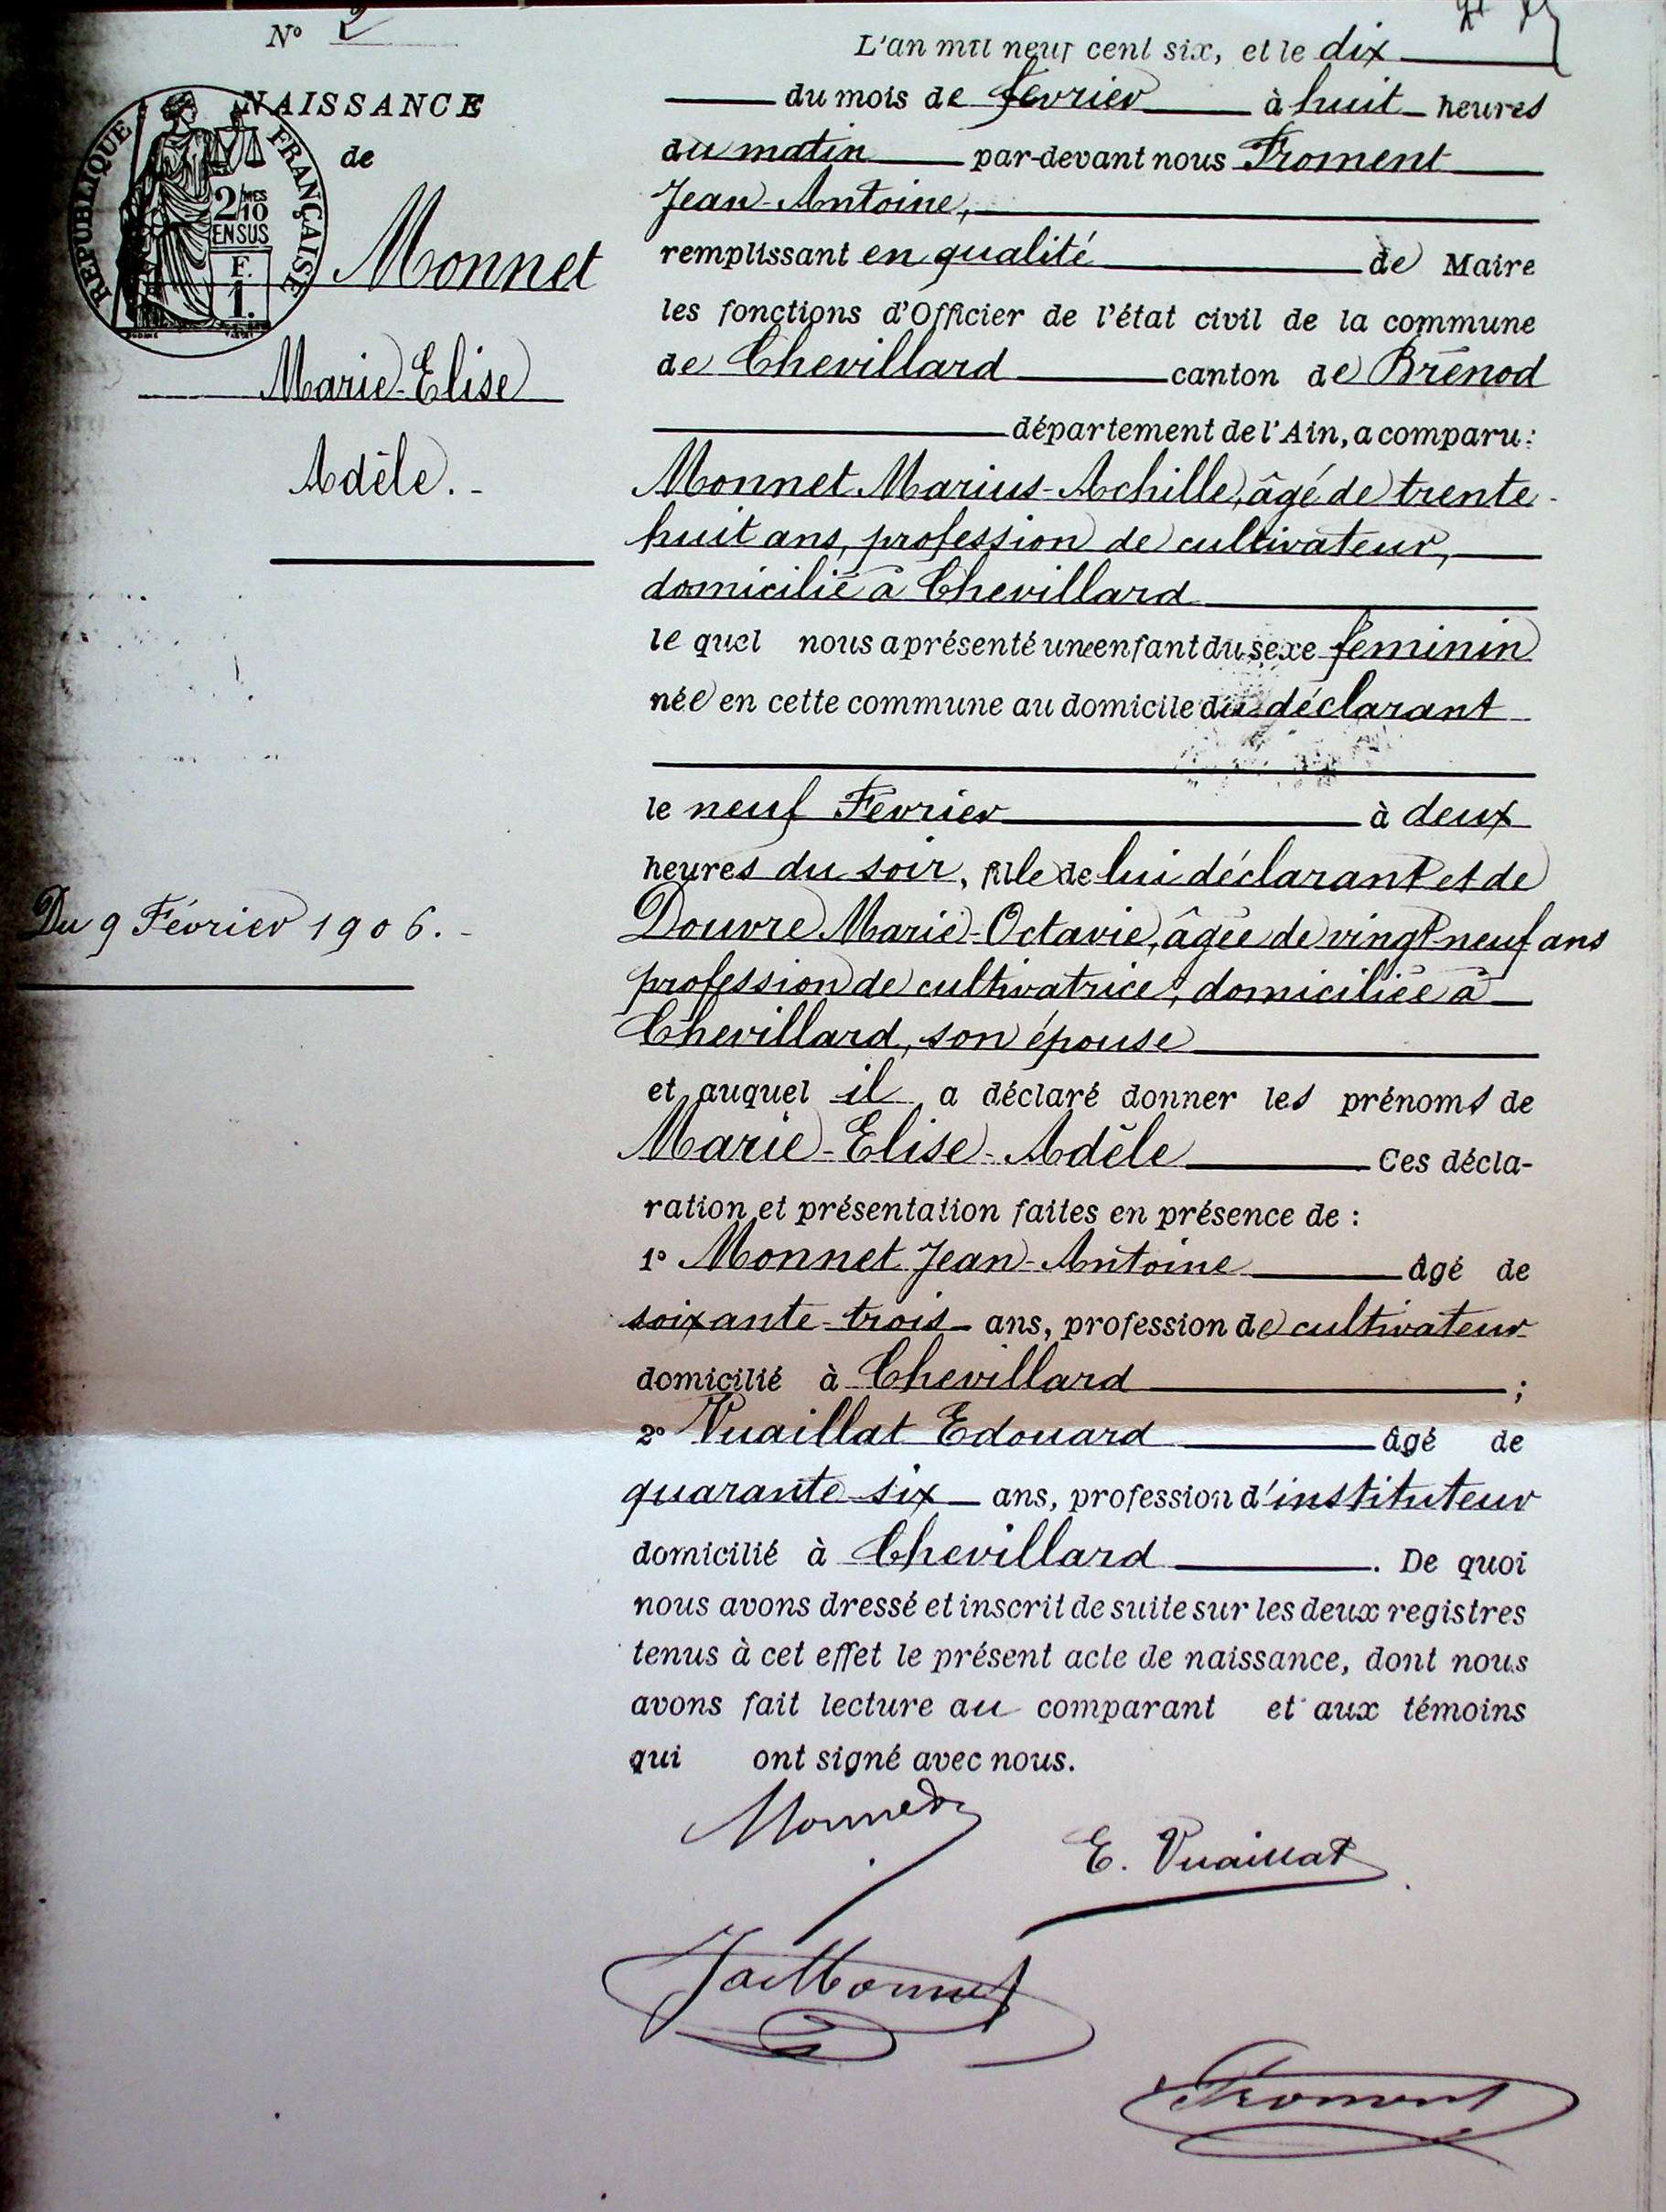 N° 2
NAISSANCE
de
RÉPUBLIQUE FRANÇAISE
2/10 MES
EN SUS
F.
1.
Monnet
Marie-Elise
Adèle. -
Du 9 Février 1906. -
L'an mil neuf cent six, et le dix
du mois de février à huit heures
du matin par-devant nous Froment
Jean-Antoine,
remplissant en qualité de Maire
les fonctions d'Officier de l'état civil de la commune
de Chevillard canton de Brénod
département de l'Ain, a comparu:
Monnet Marius-Achille, âgé de trente-
huit ans, profession de cultivateur,
domicilié à Chevillard
le quel nous a présenté une enfant du sexe féminin
née en cette commune au domicile du déclarant
le neuf Février à deux
heures du soir, fille de lui déclarant et de
Douvre Marie-Octavie, âgée de vingt neuf ans
profession de cultivatrice, domiciliée à
Chevillard, son épouse
et auquel il a déclaré donner les prénoms de
Marie-Elise-Adèle Ces décla-
ration et présentation faites en présence de :
1° Monnet Jean-Antoine âgé de
soixante-trois ans, profession de cultivateur
domicilié à Chevillard ;
2° Vuaillat Edouard âgé de
quarante six ans, profession d'instituteur
domicilié à Chevillard. De quoi
nous avons dressé et inscrit de suite sur les deux registres
tenus à cet effet le présent acte de naissance, dont nous
avons fait lecture au comparant et aux témoins
qui ont signé avec nous.
Monnet
E. Vuaillat
Monnet
Froment